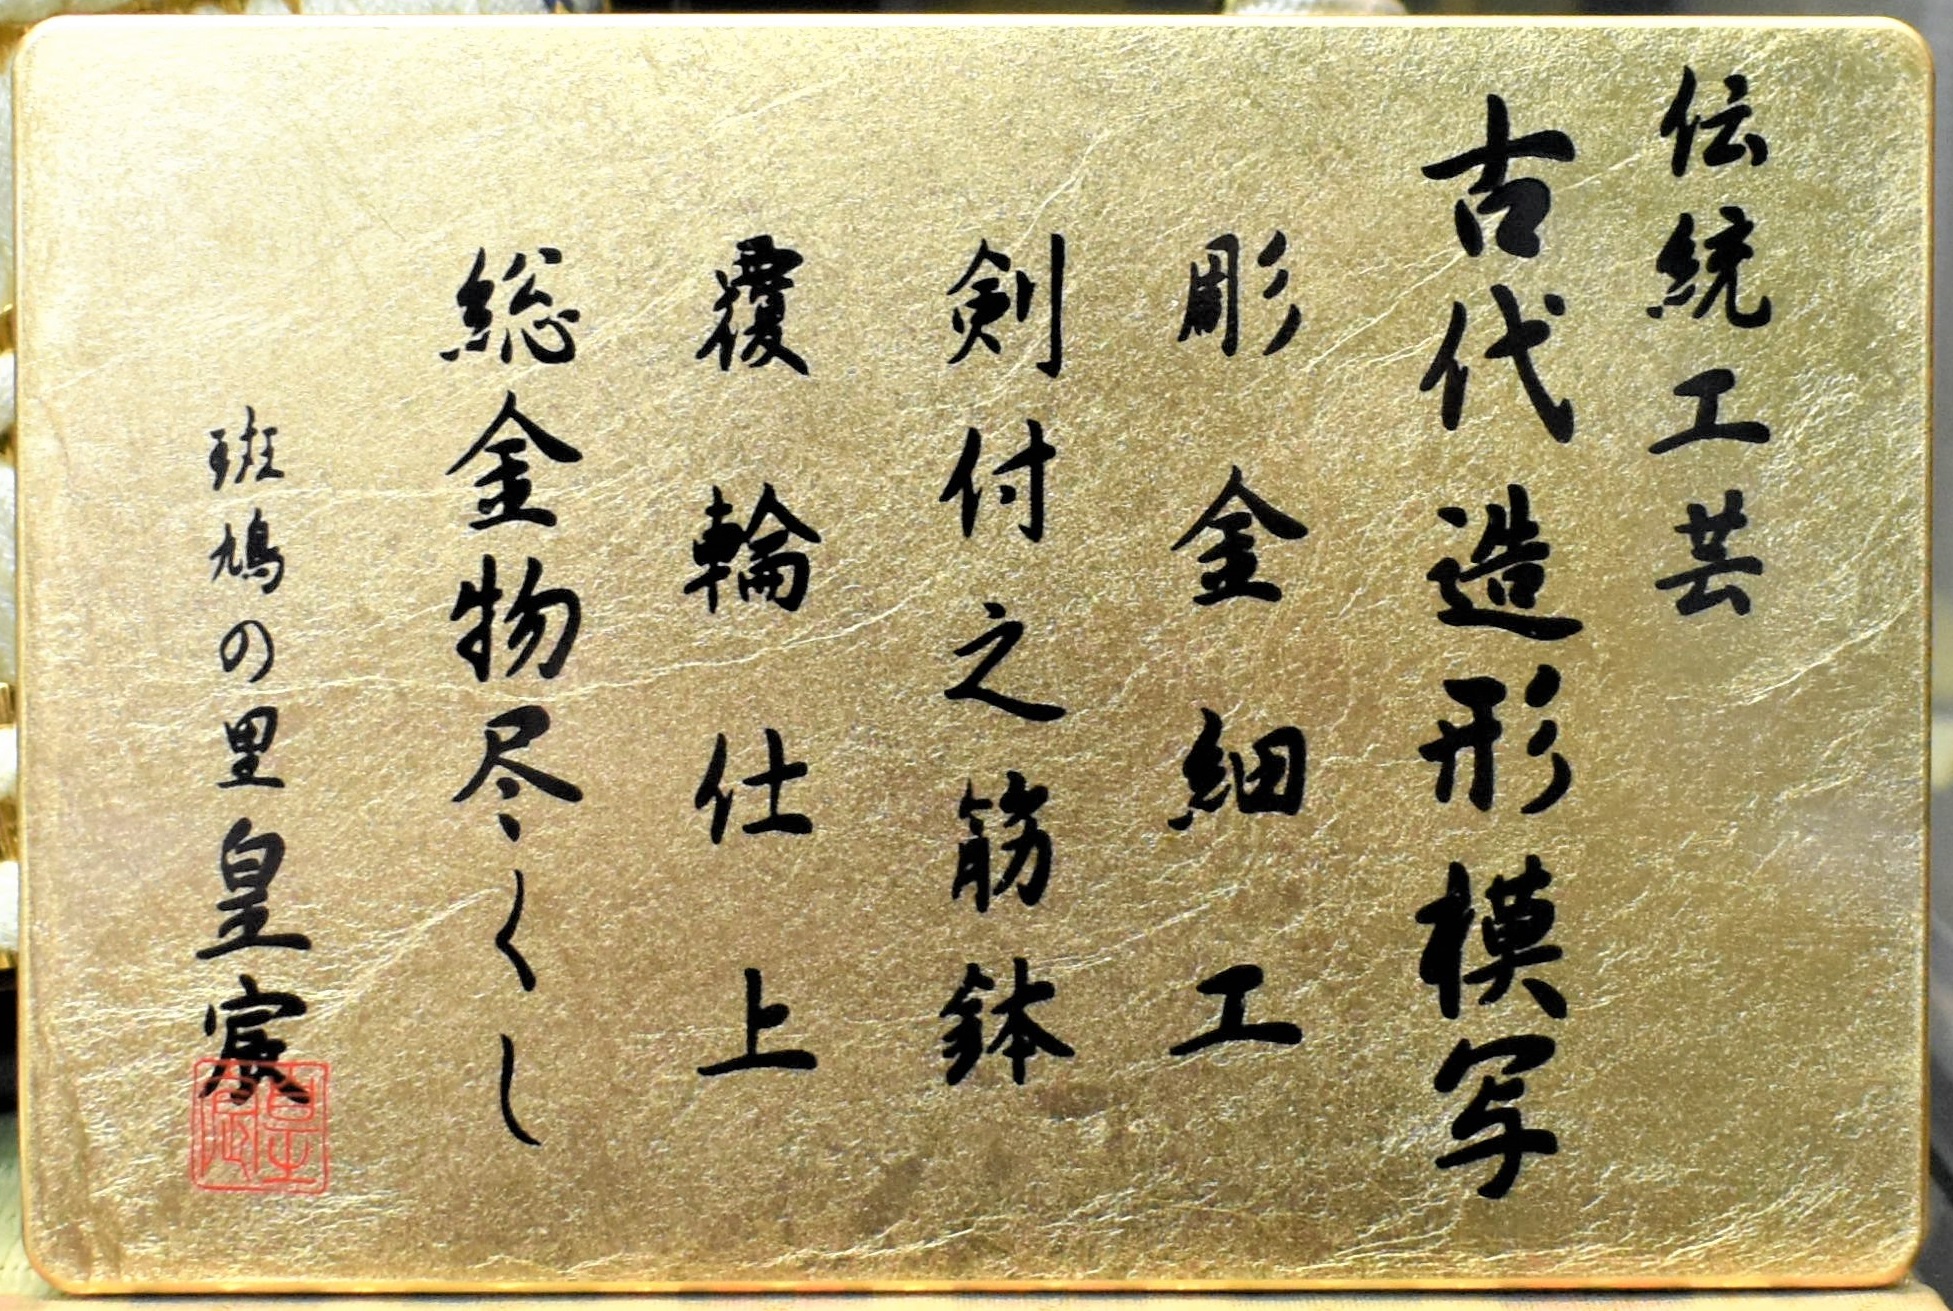 伝統工芸
古代造形模写
彫金細工
剣付之筋鉢
覆輪仕上
総金物尽くし
斑鳩の里皇宸